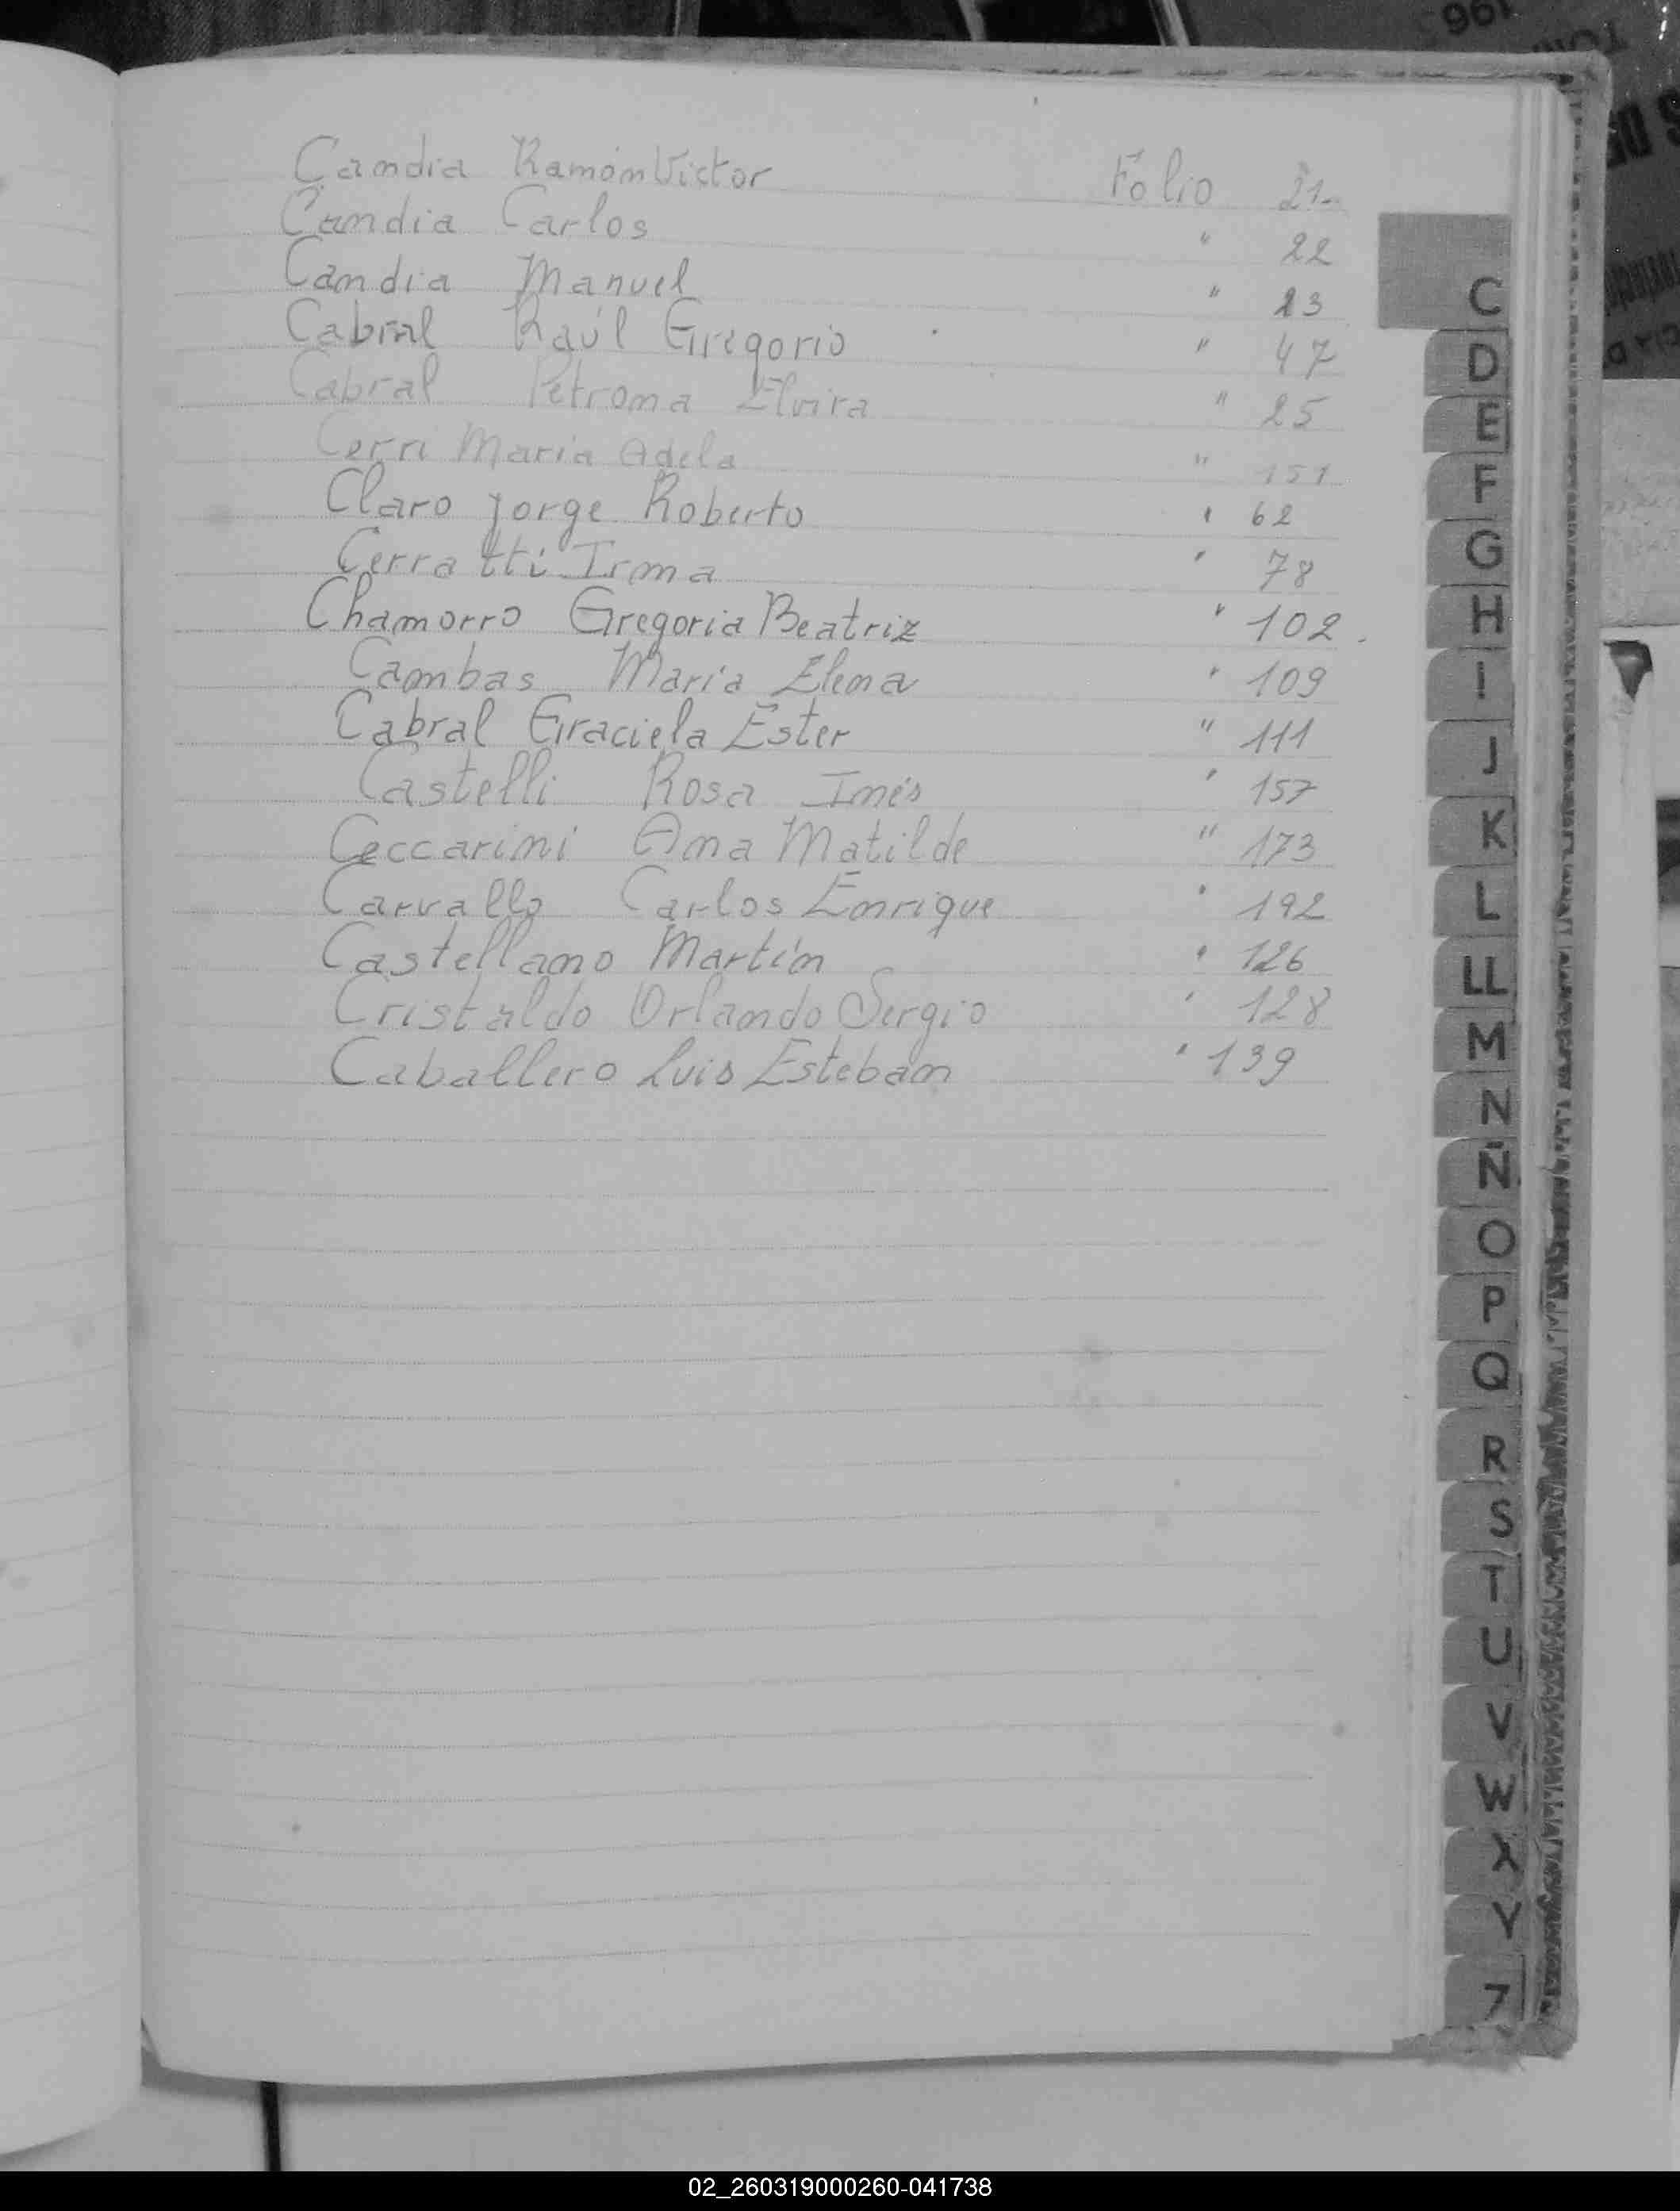 Candia Ramón Victor Folio 21-
Candia Carlos " 22
Candia Manuel " 23
Cabral Raúl Gregorio " 47
Cabral Petrona Elvira " 25
Cerri Maria Adela " 151
Claro Jorge Roberto " 62
Cerratti Irma " 78
Chamorro Gregoria Beatriz " 102.
Cambas María Elena " 109
Cabral Graciela Ester " 111
Castelli Rosa Inés " 157
Ceccarini Ana Matilde " 173
Carvallo Carlos Enrique " 192
Castellano Martín " 126
Cristaldo Orlando Sergio " 128
Caballero Luis Esteban " 139
C
D
E
F
G
H
I
J
K
L
LL
M
N
Ñ
O
P
Q
R
S
T
U
V
W
X
Y
Z
02_260319000260-041738